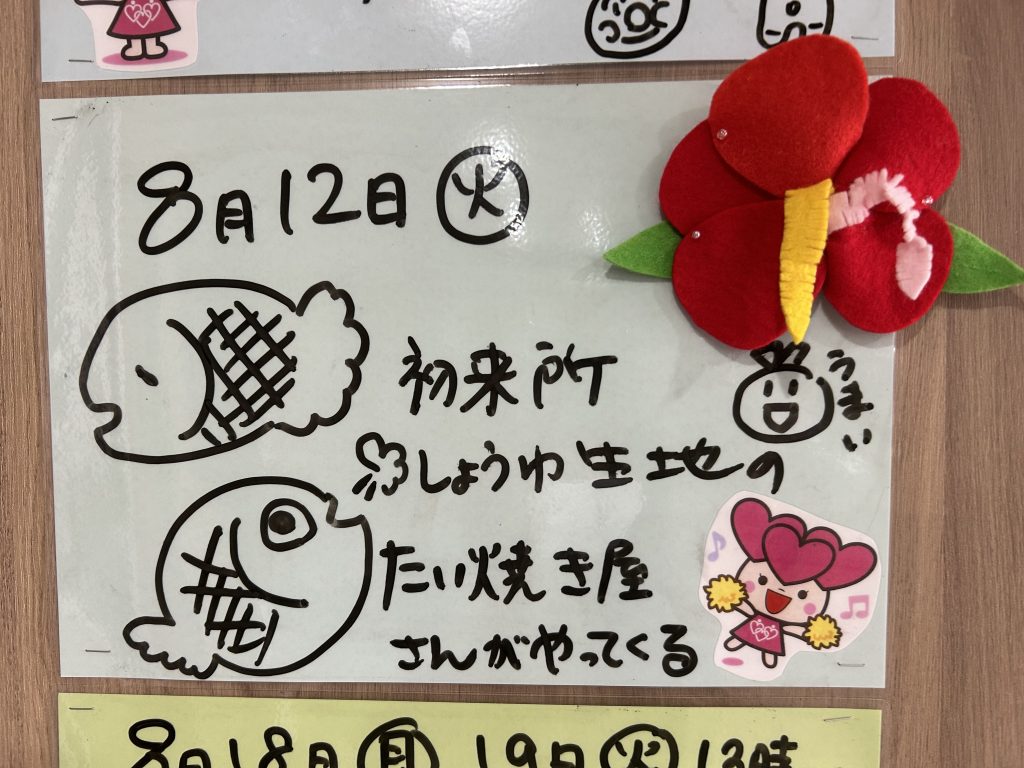 8月12日㊋
初来所
うまい
しょうゆ生地の
たい焼き屋
さんがやってくる
8月18日㊊19日㊋13時